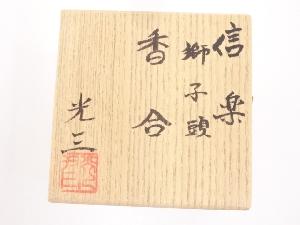 信楽
獅子頭
香合
光三